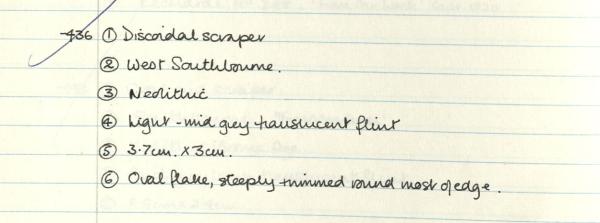 436 ① Discoidal scraper
② West Southbourne.
③ Neolithic
④ Light-mid grey translucent flint
⑤ 3.7cm. X 3cm.
⑥ Oval flake, steeply trimmed round most of edge.